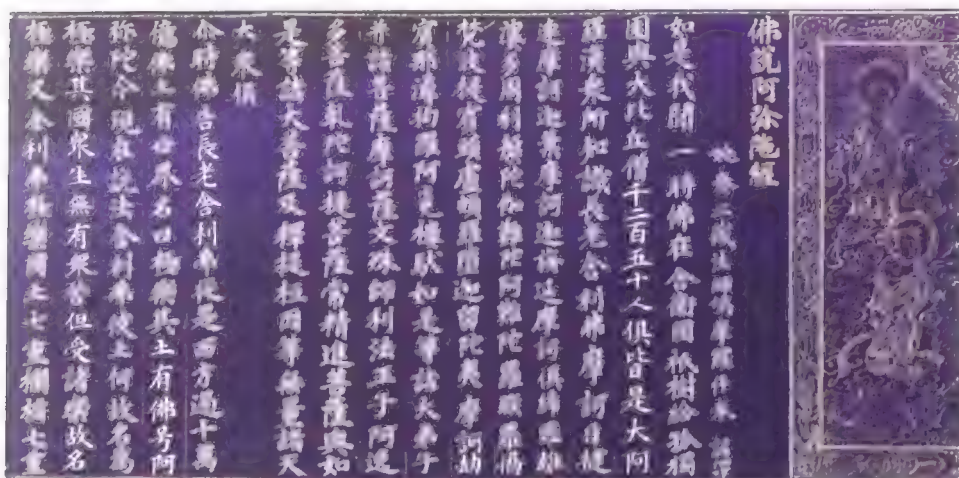 佛說阿弥陁經
姚秦三藏法師鳩摩羅什奉 詔譯
如是我聞一時佛在舍衛國祇樹給孤獨
園與大比丘僧千二百五十人俱皆是大阿
羅漢衆所知識長老舍利弗摩訶目揵
連摩訶迦葉摩訶迦栴延摩訶俱絺羅離
婆多周利槃陁伽難陁阿難陁羅睺羅憍
梵波提賓頭盧頗羅墮迦留陁夷摩訶劫
賓那薄拘羅阿㝹樓馱如是等諸大弟子
并諸菩薩摩訶薩文殊師利法王子阿逸
多菩薩乾陁訶提菩薩常精進菩薩與如
是等諸大菩薩及釋提桓因等無量諸天
大衆俱
尒時佛告長老舍利弗從是西方過十萬
億佛土有世界名曰極樂其土有佛号阿
弥陁今現在說法舍利弗彼土何故名為
極樂其國衆生無有衆苦但受諸樂故名
極樂又舍利弗極樂國土七重欄楯七重